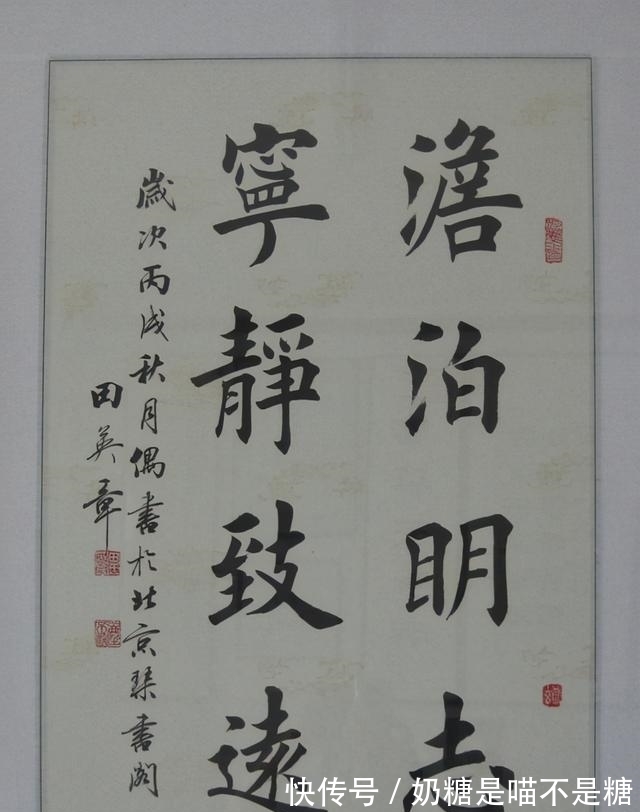 澹泊明志
寧靜致遠
歲次丙戌秋月偶書於北京琹書閣
田英章
快传号 / 奶糖是喵不是糖